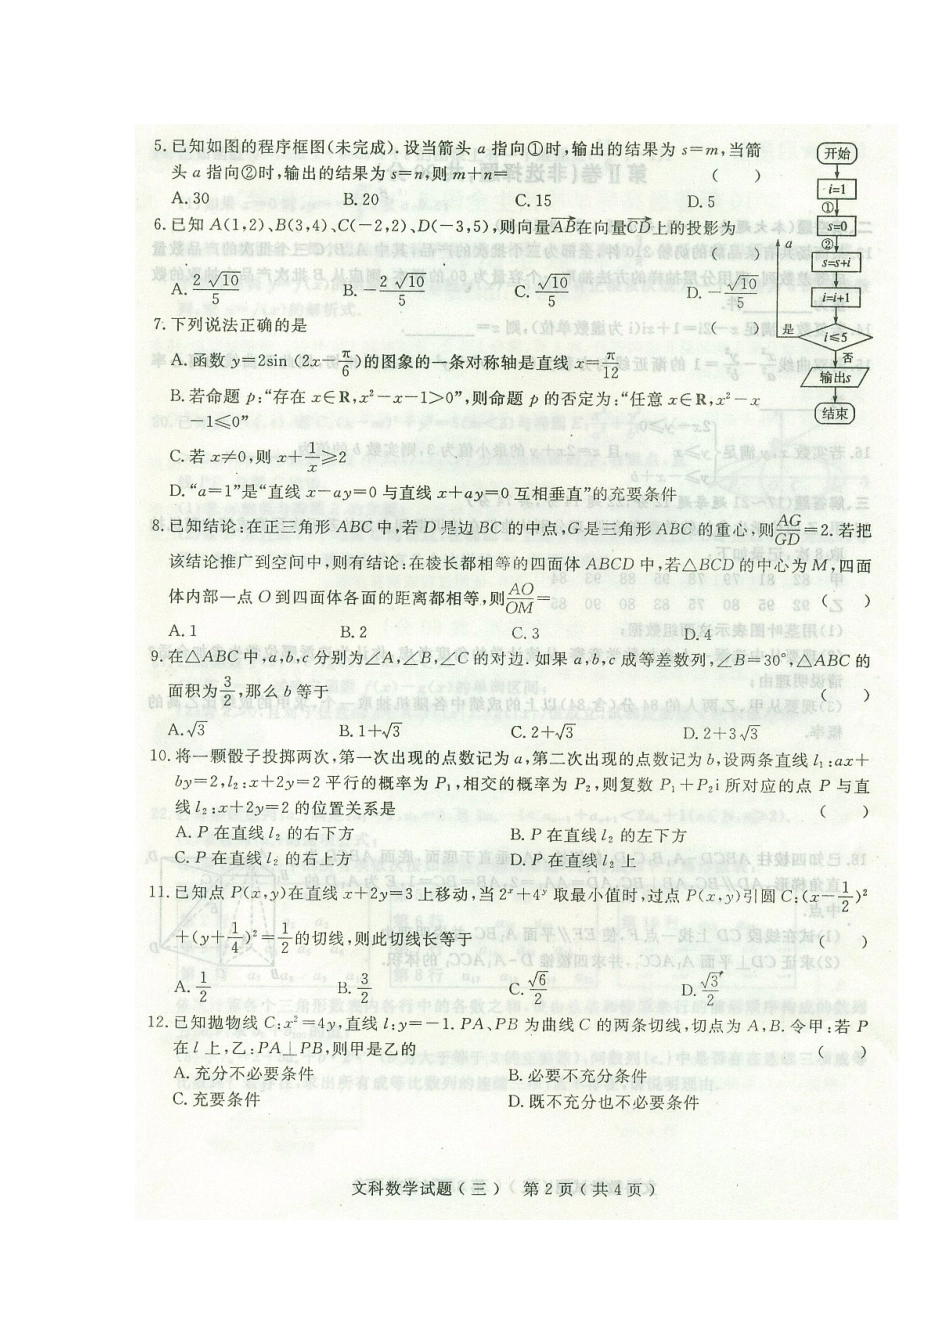 5.已知如图的程序框图(未完成).设当箭头 a 指向①时,输出的结果为 s=m,当箭
头 a 指向②时,输出的结果为 s=n,则 m+n= ( )
A.30 B.20 C.15 D.5
6.已知 A(1,2)、B(3,4)、C(-2,2)、D(-3,5),则向量AB在向量CD上的投影为
( )
A. 2√10/5 B. -2√10/5 C. √10/5 D. -√10/5
7.下列说法正确的是 ( )
A.函数 y=2sin (2x-π/6)的图象的一条对称轴是直线 x=π/12
B.若命题 p:“存在 x∈R,x²-x-1>0”,则命题 p 的否定为:“任意 x∈R,x²-x
-1≤0”
C.若 x≠0,则 x+1/x≥2
D.“a=1”是“直线 x-ay=0 与直线 x+ay=0 互相垂直”的充要条件
开始
i=1
①
s=0
②
a
s=s+i
i=i+1
是
i≤5
否
输出s
结束
8.已知结论:在正三角形 ABC 中,若 D 是边 BC 的中点,G 是三角形 ABC 的重心,则AG/GD=2.若把
该结论推广到空间中,则有结论:在棱长都相等的四面体 ABCD 中,若△BCD 的中心为 M,四面
体内部一点 O 到四面体各面的距离都相等,则AO/OM= ( )
A.1 B.2 C.3 D.4
9.在△ABC 中,a,b,c 分别为∠A,∠B,∠C 的对边.如果 a,b,c 成等差数列,∠B=30°,△ABC 的
面积为3/2,那么 b 等于 ( )
A.√3 B.1+√3 C.2+√3 D.2+3√3
10.将一颗骰子投掷两次,第一次出现的点数记为 a,第二次出现的点数记为 b,设两条直线 l₁:ax+
by=2,l₂:x+2y=2 平行的概率为 P₁,相交的概率为 P₂,则复数 P₁+P₂i 所对应的点 P 与直
线 l₂:x+2y=2 的位置关系是 ( )
A.P 在直线 l₂ 的右下方 B.P 在直线 l₂ 的左下方
C.P 在直线 l₂ 的右上方 D.P 在直线 l₂ 上
11.已知点 P(x,y)在直线 x+2y=3 上移动,当 2ˣ+4ʸ 取最小值时,过点 P(x,y)引圆 C:(x-1/2)²
+(y+1/4)²=1/2的切线,则此切线长等于 ( )
A. 1/2 B. 3/2 C. √6/2 D. √3/2
12.已知抛物线 C:x²=4y,直线 l:y=-1.PA、PB 为曲线 C 的两条切线,切点为 A,B.令甲:若 P
在 l 上,乙:PA⊥PB,则甲是乙的 ( )
A.充分不必要条件 B.必要不充分条件
C.充要条件 D.既不充分也不必要条件
文科数学试题(三) 第2页(共4页)